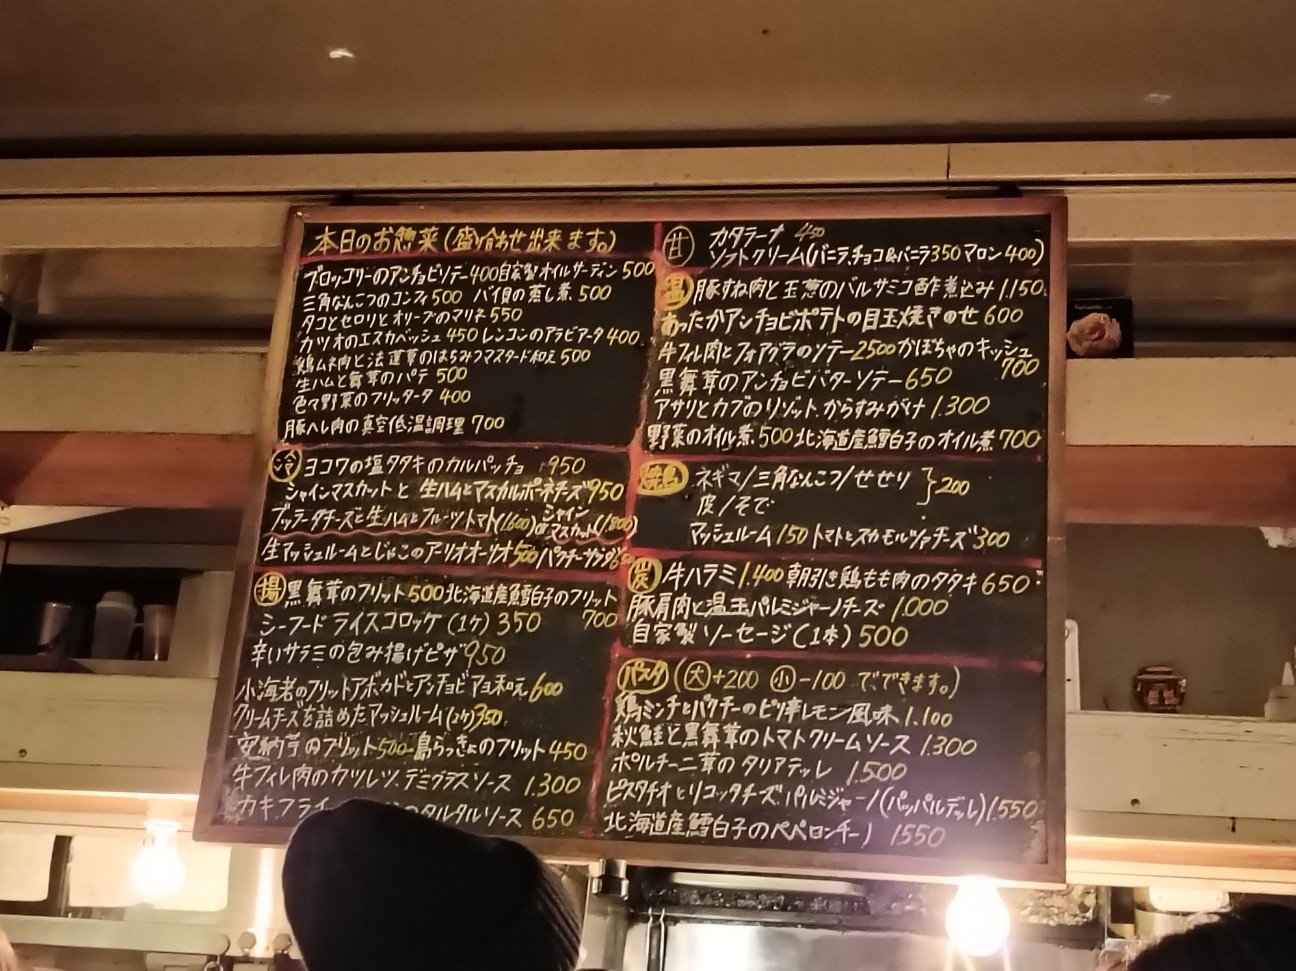 本日のお惣菜(盛り合わせ出来ます。)
ブロッコリーのアンチョビソテー400自家製オイルサーディン500
三角なんこつのコンフィ500 バイ貝の蒸し煮500
タコとセロリとオリーブのマリネ550
カツオのエスカベッシュ450レンコンのアラビアータ400
鶏ムネ肉と法蓮草のはちみつマスタード和え500
生ハムと舞茸のパテ500
色々野菜のフリッタータ400
豚ヘレ肉の真空低温調理700
冷 ヨコワの塩タタキのカルパッチョ 950
シャインマスカットと生ハムとマスカルポーネチーズ950
ブッラータチーズと生ハムとフルーツトマト(1600)or シャインマスカット(1800)
生マッシュルームとじゃこのアリオオーリオ500パクチーサラダ
揚 黒舞茸のフリット500北海道産鱈白子のフリット700
シーフードライスコロッケ(1ケ)350
辛いサラミの包み揚げピザ950
小海老のフリットアボカドとアンチョビマヨ和え600
クリームチーズを詰めたマッシュルーム(2ケ)350
安納芋のフリット500 島らっきょのフリット450
牛フィレ肉のカツレツ、デミグラスソース 1.300
カキフライ のタルタルソース 650
甘 カタラーナ 450
ソフトクリーム(バニラ、チョコ&バニラ350マロン400)
温 豚すね肉と玉葱のバルサミコ酢煮込み1.150
あったかアンチョビポテトの目玉焼きのせ600
牛フィレ肉とフォアグラのソテー2500かぼちゃのキッシュ700
黒舞茸のアンチョビバターソテー650
アサリとカブのリゾット、からすみがけ1.300
野菜のオイル煮500北海道産鱈白子のオイル煮700
焼鳥 ネギマ/三角なんこつ/せせり
皮/そで }200
マッシュルーム150トマトとスカモルツァチーズ300
炭 牛ハラミ1.400朝引き鶏もも肉のタタキ650
豚肩肉と温玉パルミジャーノチーズ1.000
自家製ソーセージ(1本)500
パスタ (大+200 小-100 でできます。)
鶏ミンチとパクチーのピリ辛レモン風味1.100
秋鮭と黒舞茸のトマトクリームソース1.300
ポルチーニ茸のタリアテッレ 1.500
ピスタチオとリコッタチーズ、パルミジャーノ(パッパルデッレ)1.550
北海道産鱈白子のペペロンチーノ 1550